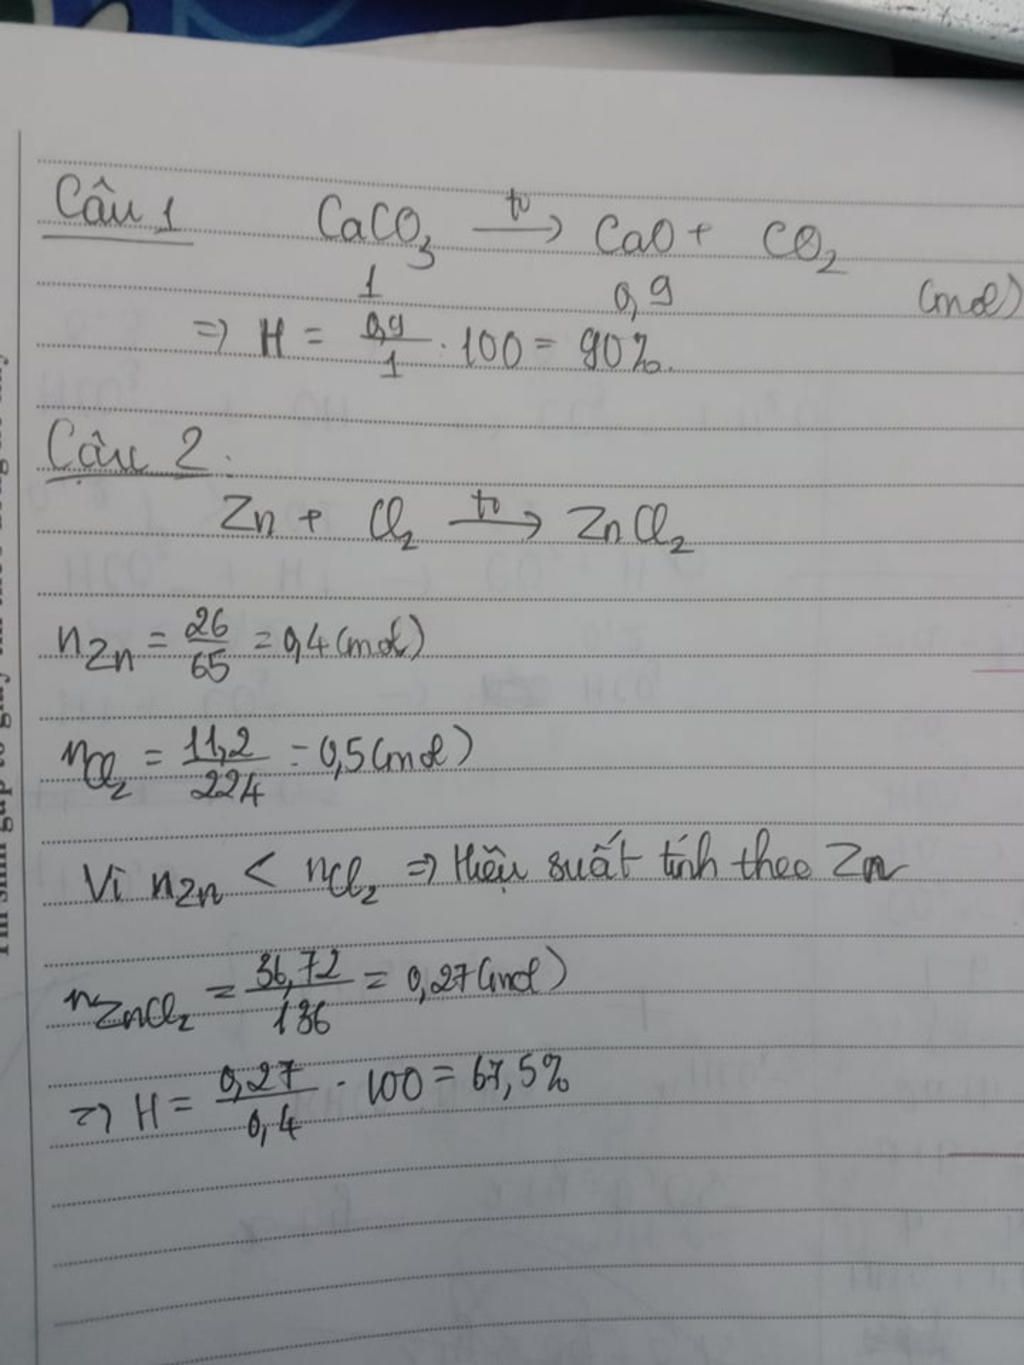 Câu 1 CaCO3 t° → CaO + CO2
1 0,9 (mol)
=> H = 0,9/1 . 100 = 90%.
Câu 2.
Zn + Cl2 t° → ZnCl2
nZn = 26/65 = 0,4 (mol)
nCl2 = 11,2/22,4 = 0,5 (mol)
Vì nZn < nCl2 => Hiệu suất tính theo Zn
nZnCl2 = 36,72/136 = 0,27 (mol)
=> H = 0,27/0,4 . 100 = 67,5%